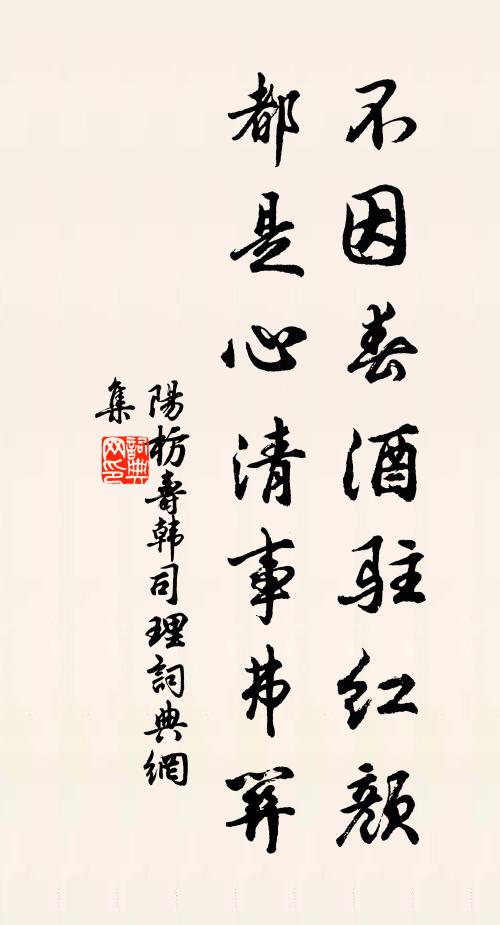 不因春酒駐紅顏
都是心清事弗關
陽枋壽韓司理詞典網
集
詞典网印